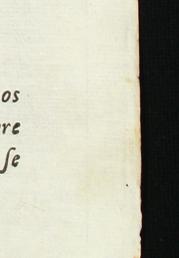 os
re
ſe